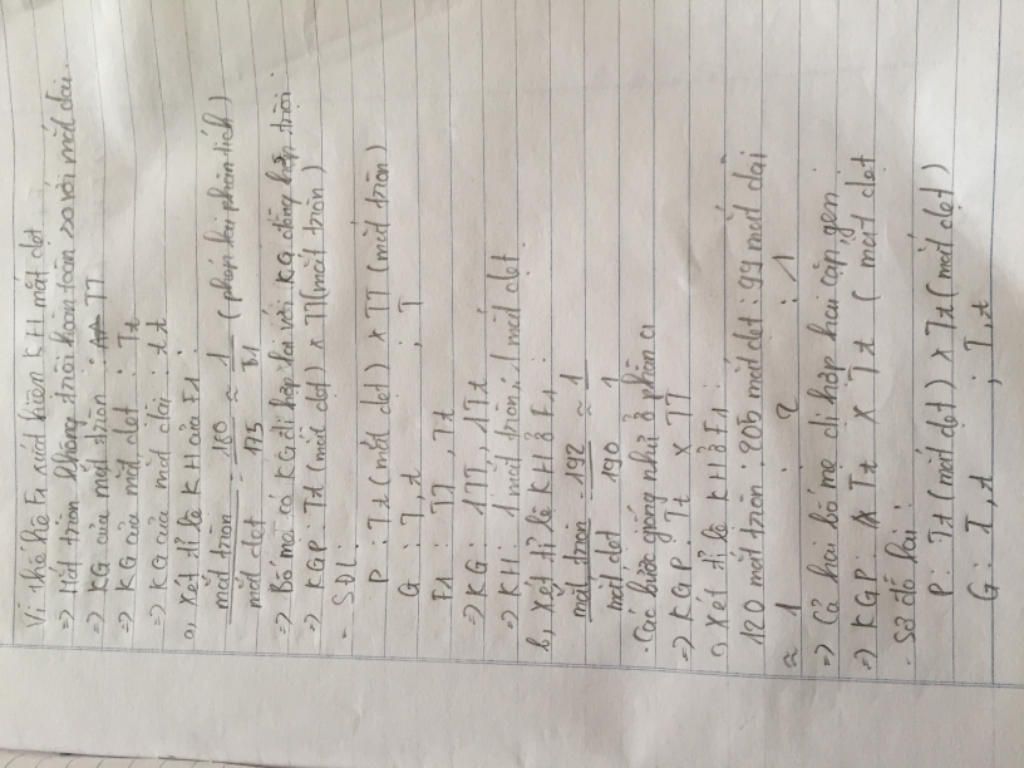 Vì thế hệ F1 xuất hiện KH mắt dẹt
=> Mắt tròn không trội hoàn toàn so với mắt dài.
=> KG của mắt tròn : TT
=> KG của mắt dẹt : Tt
=> KG của mắt dài : tt
a, Xét tỉ lệ KH của F1 :
mắt tròn = 180 ≈ 1 (phép lai phân tích)
mắt dẹt 175 1
=> Bố mẹ có KG dị hợp lai với KG đồng hợp trội.
=> KGP : Tt (mắt dẹt) x TT (mắt tròn)
- SĐL :
P : Tt (mắt dẹt) x TT (mắt tròn)
G : T, t ; T
F1 : TT, Tt
=> KG : 1TT, 1Tt
=> KH : 1 mắt tròn, 1 mắt dẹt
b, Xét tỉ lệ KH ở F1 :
mắt tròn = 192 ≈ 1
mắt dẹt 190 1
- Các bước giống như ở phần a
=> KGP : Tt x TT
c, Xét tỉ lệ KH ở F1
120 mắt tròn : 205 mắt dẹt : 99 mắt dài
≈ 1 : 2 : 1
=> Cả hai bố mẹ dị hợp hai cặp gen
=> KGP : Tt x Tt ( mắt dẹt
- Sơ đồ lai :
P : Tt (mắt dẹt) x Tt (mắt dẹt)
G : T, t ; T, t